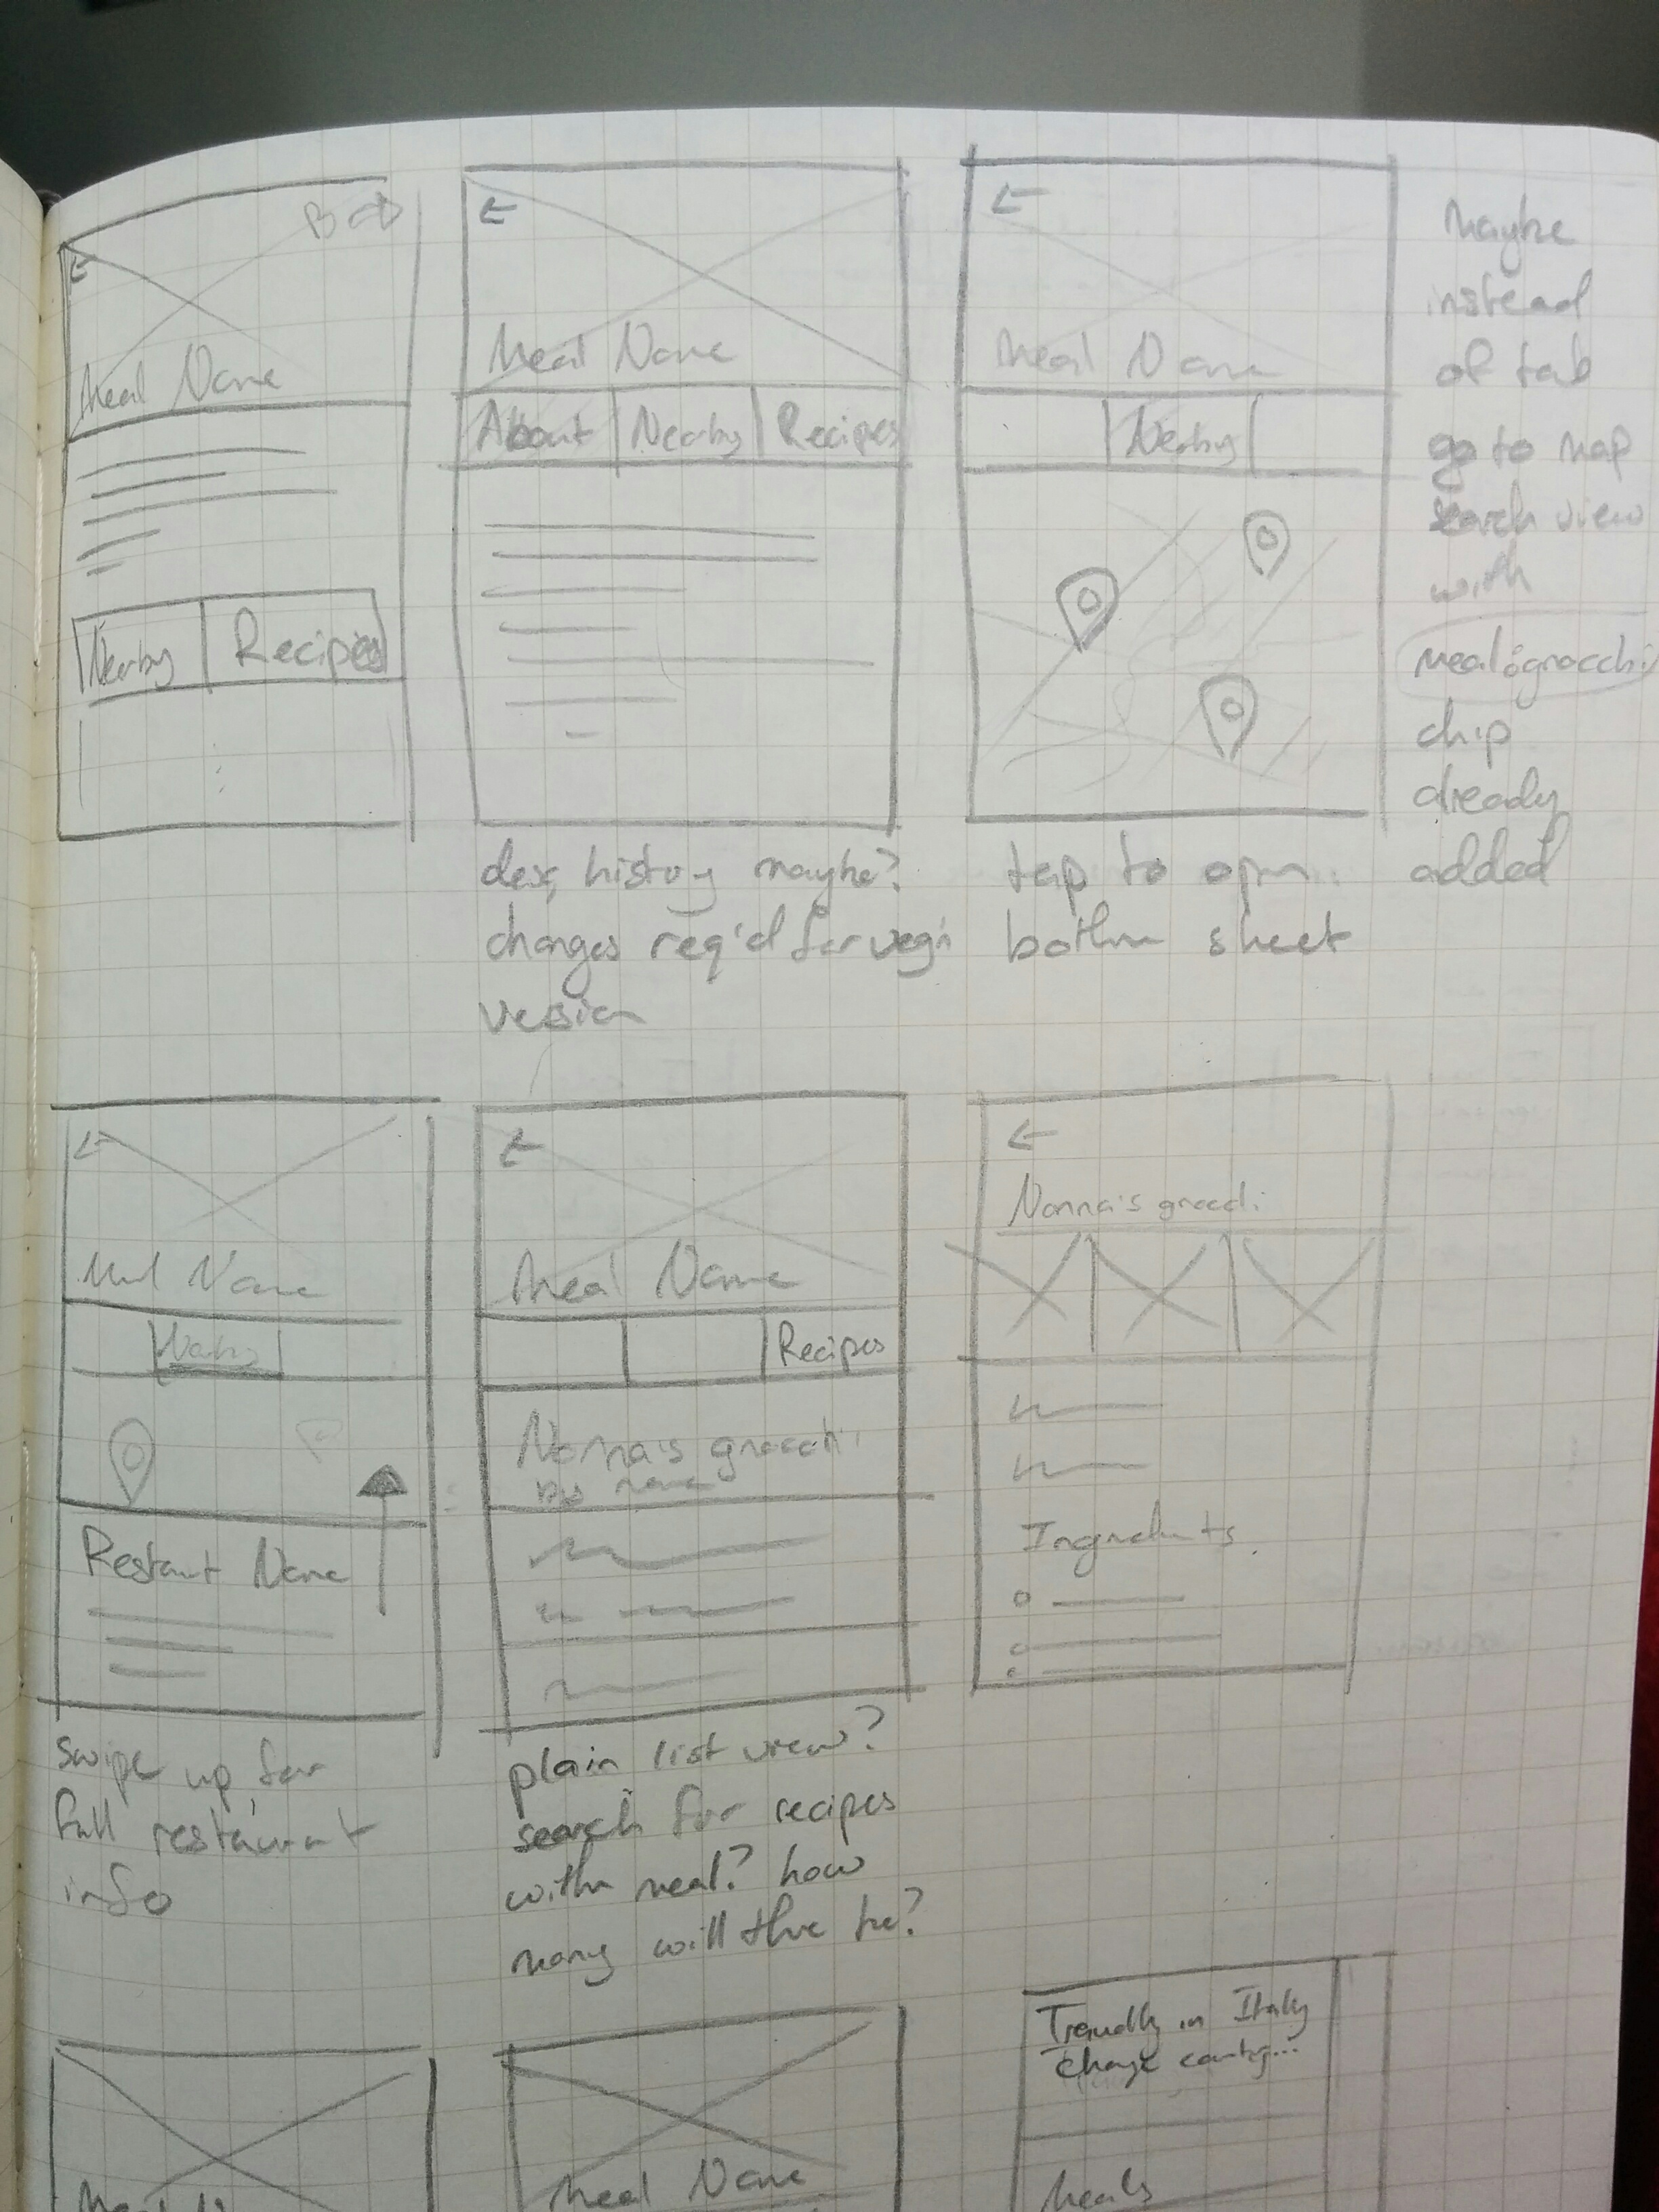 Meal Name
Nearby Recipes
Meal Name
About Nearby Recipes
desc, history maybe?
changes req'd for veg'n
version
Meal Name
Nearby
tap to open
bottom sheet
Maybe
instead
of tab
go to map
search view
with
meal:gnocchi
chip
already
added
Meal Name
Nearby
Restaunt Name
swipe up for
full restaurant
info
Meal Name
Recipes
Nonna's gnocchi
by name
plain list view?
search for recipes
with meal? how
many will there be?
Nonna's gnocchi
Ingredients
Meal N
Meal Name
in Italy
change country...
Meals